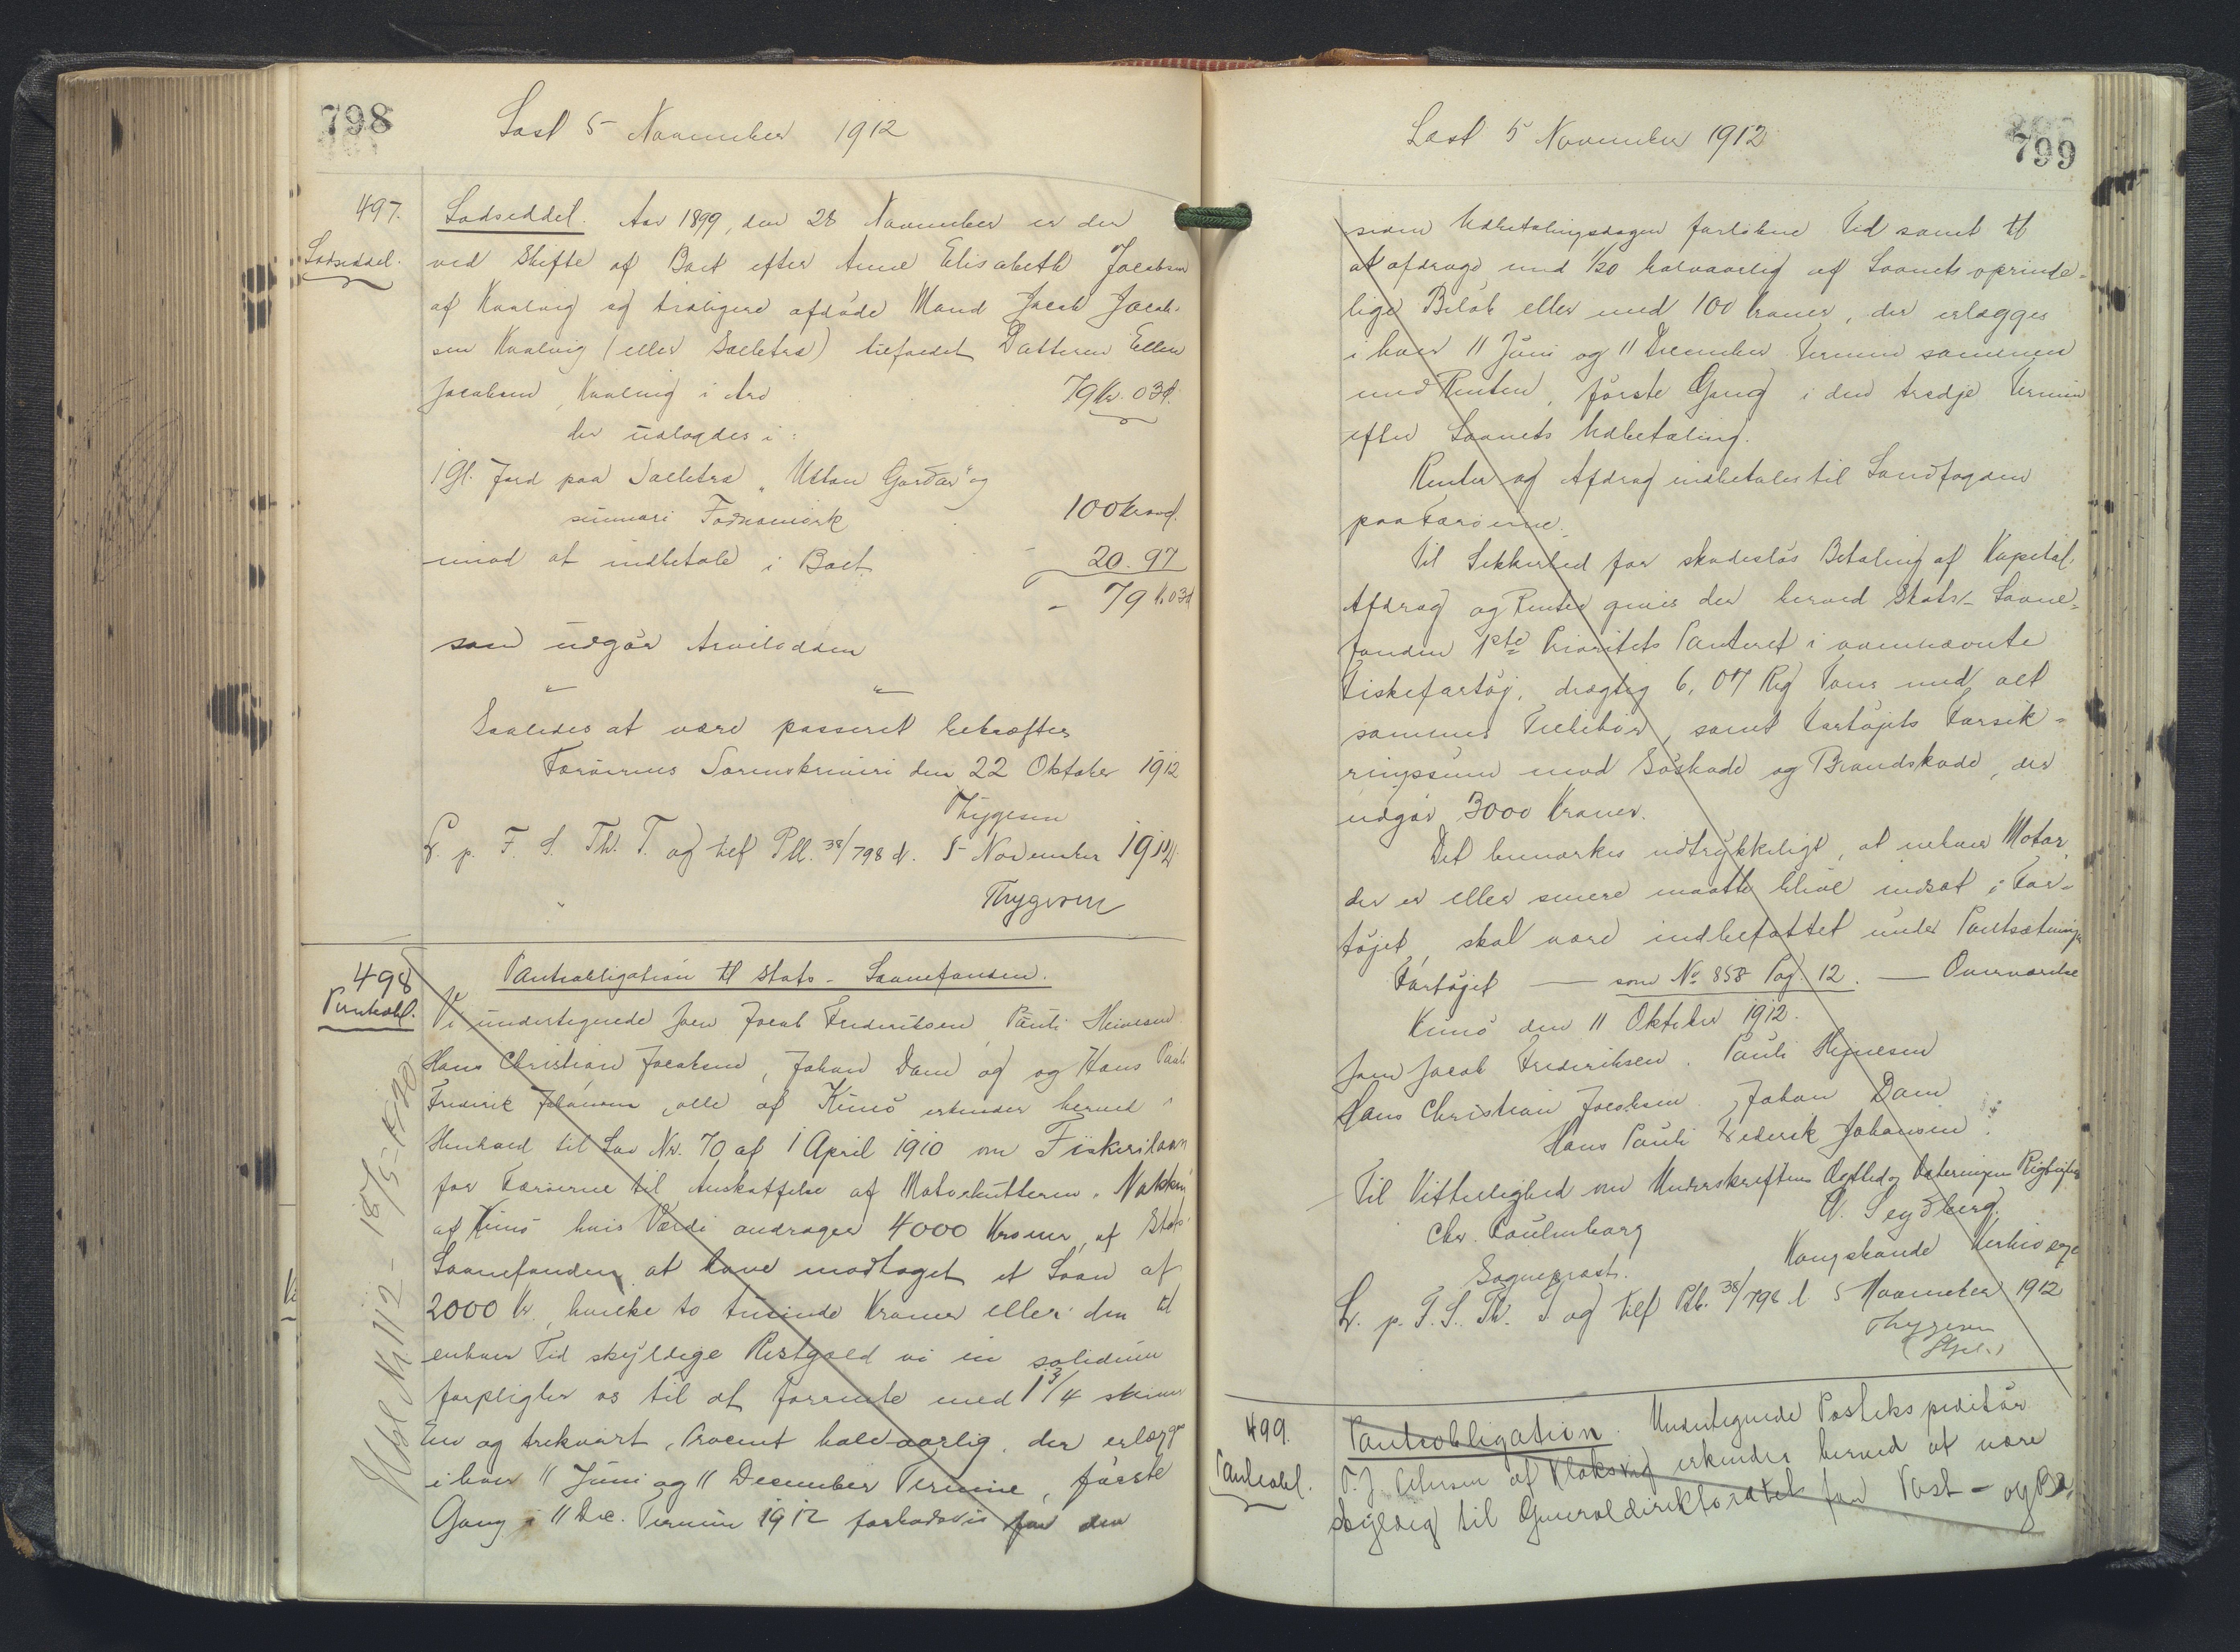 798
Læst 5 November 1912
497.
Lodseddel.
Lodseddel. Aar 1899, den 28 November er der
ved Skifte af Boet efter Anne Elisabeth Jacobsen
af Kvalvig og tidligere afdøde Mand Jacob Jacob-
sen Kvalvig (eller Saltetra) tilfaldet Datteren Ellen
Jacobsen, Kvalvig i Arv 79 Kr. 03 Ø.
der udlagdes i:
1 Gl. Jord paa " Uttan Gardar" og
100 Kr
imod at indbetale i Boet 20. 97
- 79 Kr 03 Ø
som udgør Arvelodden
Saaledes at være passeret bekræfter
Færøernes Sorenskriveri den 22 Oktober 1912
Thygesen
L. p. F. S. Th. T. og tilf Pll. 38/798 d. 5 November 1912
Thygesen
498
Pantobl.
Pantobligation til Stats-Laanefonden.
Vi undertegnede Joen Jacob Frederiksen, Pauli Heinesen
Hans Christian Jacobsen, Johan Dam og og Hans Pauli
Frederik Johansen, alle af Kunø erkender herved i
Henhold til Lov Nr. 70 af 1 April 1910 om Fiskerilaan
for Færøerne til Anskaffelse af Motorkutteren
af Kunø hvis Værdi andrager 4000 Kroner, af Stats-
Laanefonden at have modtaget et Laan af
2000 Kr., hvilke to tusinde Kroner eller den til
enhver Tid skyldige Restgæld vi in solidum
forpligter os til at forrente med 1 3/4 skriver
En og trekvart, Procent halvaarlig, der erlægges
i hver 11 Juni og 11 December Termin, første
Gang i 11 Dec. Termin 1912 forholdsvis for den
799
Læst 5 November 1912
siden Udbetalingsdagen forløbne Tid samt til
at afdrage med 1/20 halvaarlig af Laanets oprinde-
lige Beløb eller med 100 Kroner, der erlægges
i hver 11 Juni og 11 December Termin sammen
med Renten, første Gang i den tredje Termin
efter Laanets Udbetaling.
Renter og Afdrag indbetales til Landfogden
paa Færøerne.
Til Sikkerhed for skadesløs Betaling af Kapital,
Afdrag og Renter gives der herved Stats-Laane-
fonden 1ste Prioritets Panteret i ovennævnte
Fiskefartøj, drægtig 6,07 Reg Tons med alt
sammes Tilbehør, samt Fartøjets Forsik-
ringssum mod Søskade og Brandskade, der
udgør 3000 Kroner.
Det bemærkes udtrykkeligt, at enhver Motor,
der er eller senere maatte blive indsat i Far-
tøjet, skal være indbefattet under Pantsætningen
Fartøjet — som No 858 Pag. 12. — Overværelse
Kunø den 11 Oktober 1912.
Joen Jacob Frederiksen. Pauli Heinesen
Hans Christian Jacobsen. Johan Dam
Hans Pauli Frederik Johansen.
Til Vitterlighed om Underskriftens Ægthed og Dateringens Rigtighed
Chr. Paulinborg
Sognepræst.
L. p. F. S. Th. T og tilf Pll. 38/798 d 5 November 1912
Thygesen
499.
Pantobl.
Pantobligation. Undertegnede Postekspeditør
af Klaksvig erkender herved at være
skyldig til Generaldirektoratet for Post- og Be-